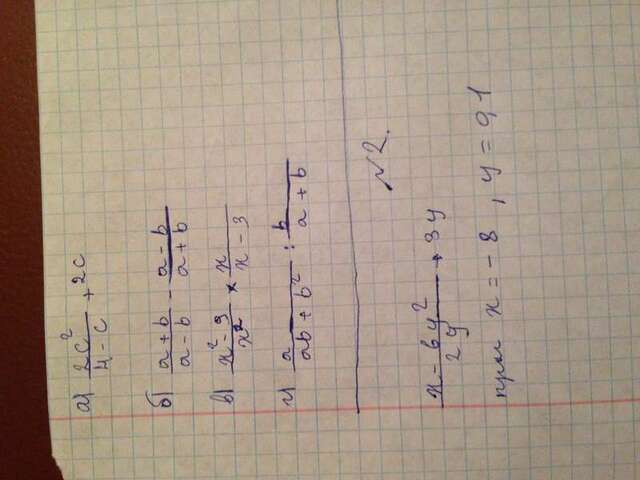 а) 2c²/(4 - c) + 2c
б) (a + b)/(a - b) - (a - b)/(a + b)
в) (x² - 9)/x² × x/(x - 3)
г) a/(ab + b²) : b/(a + b)
№2.
(x - 6y²)/(2y) + 3y
при x = -8, y = 0,1